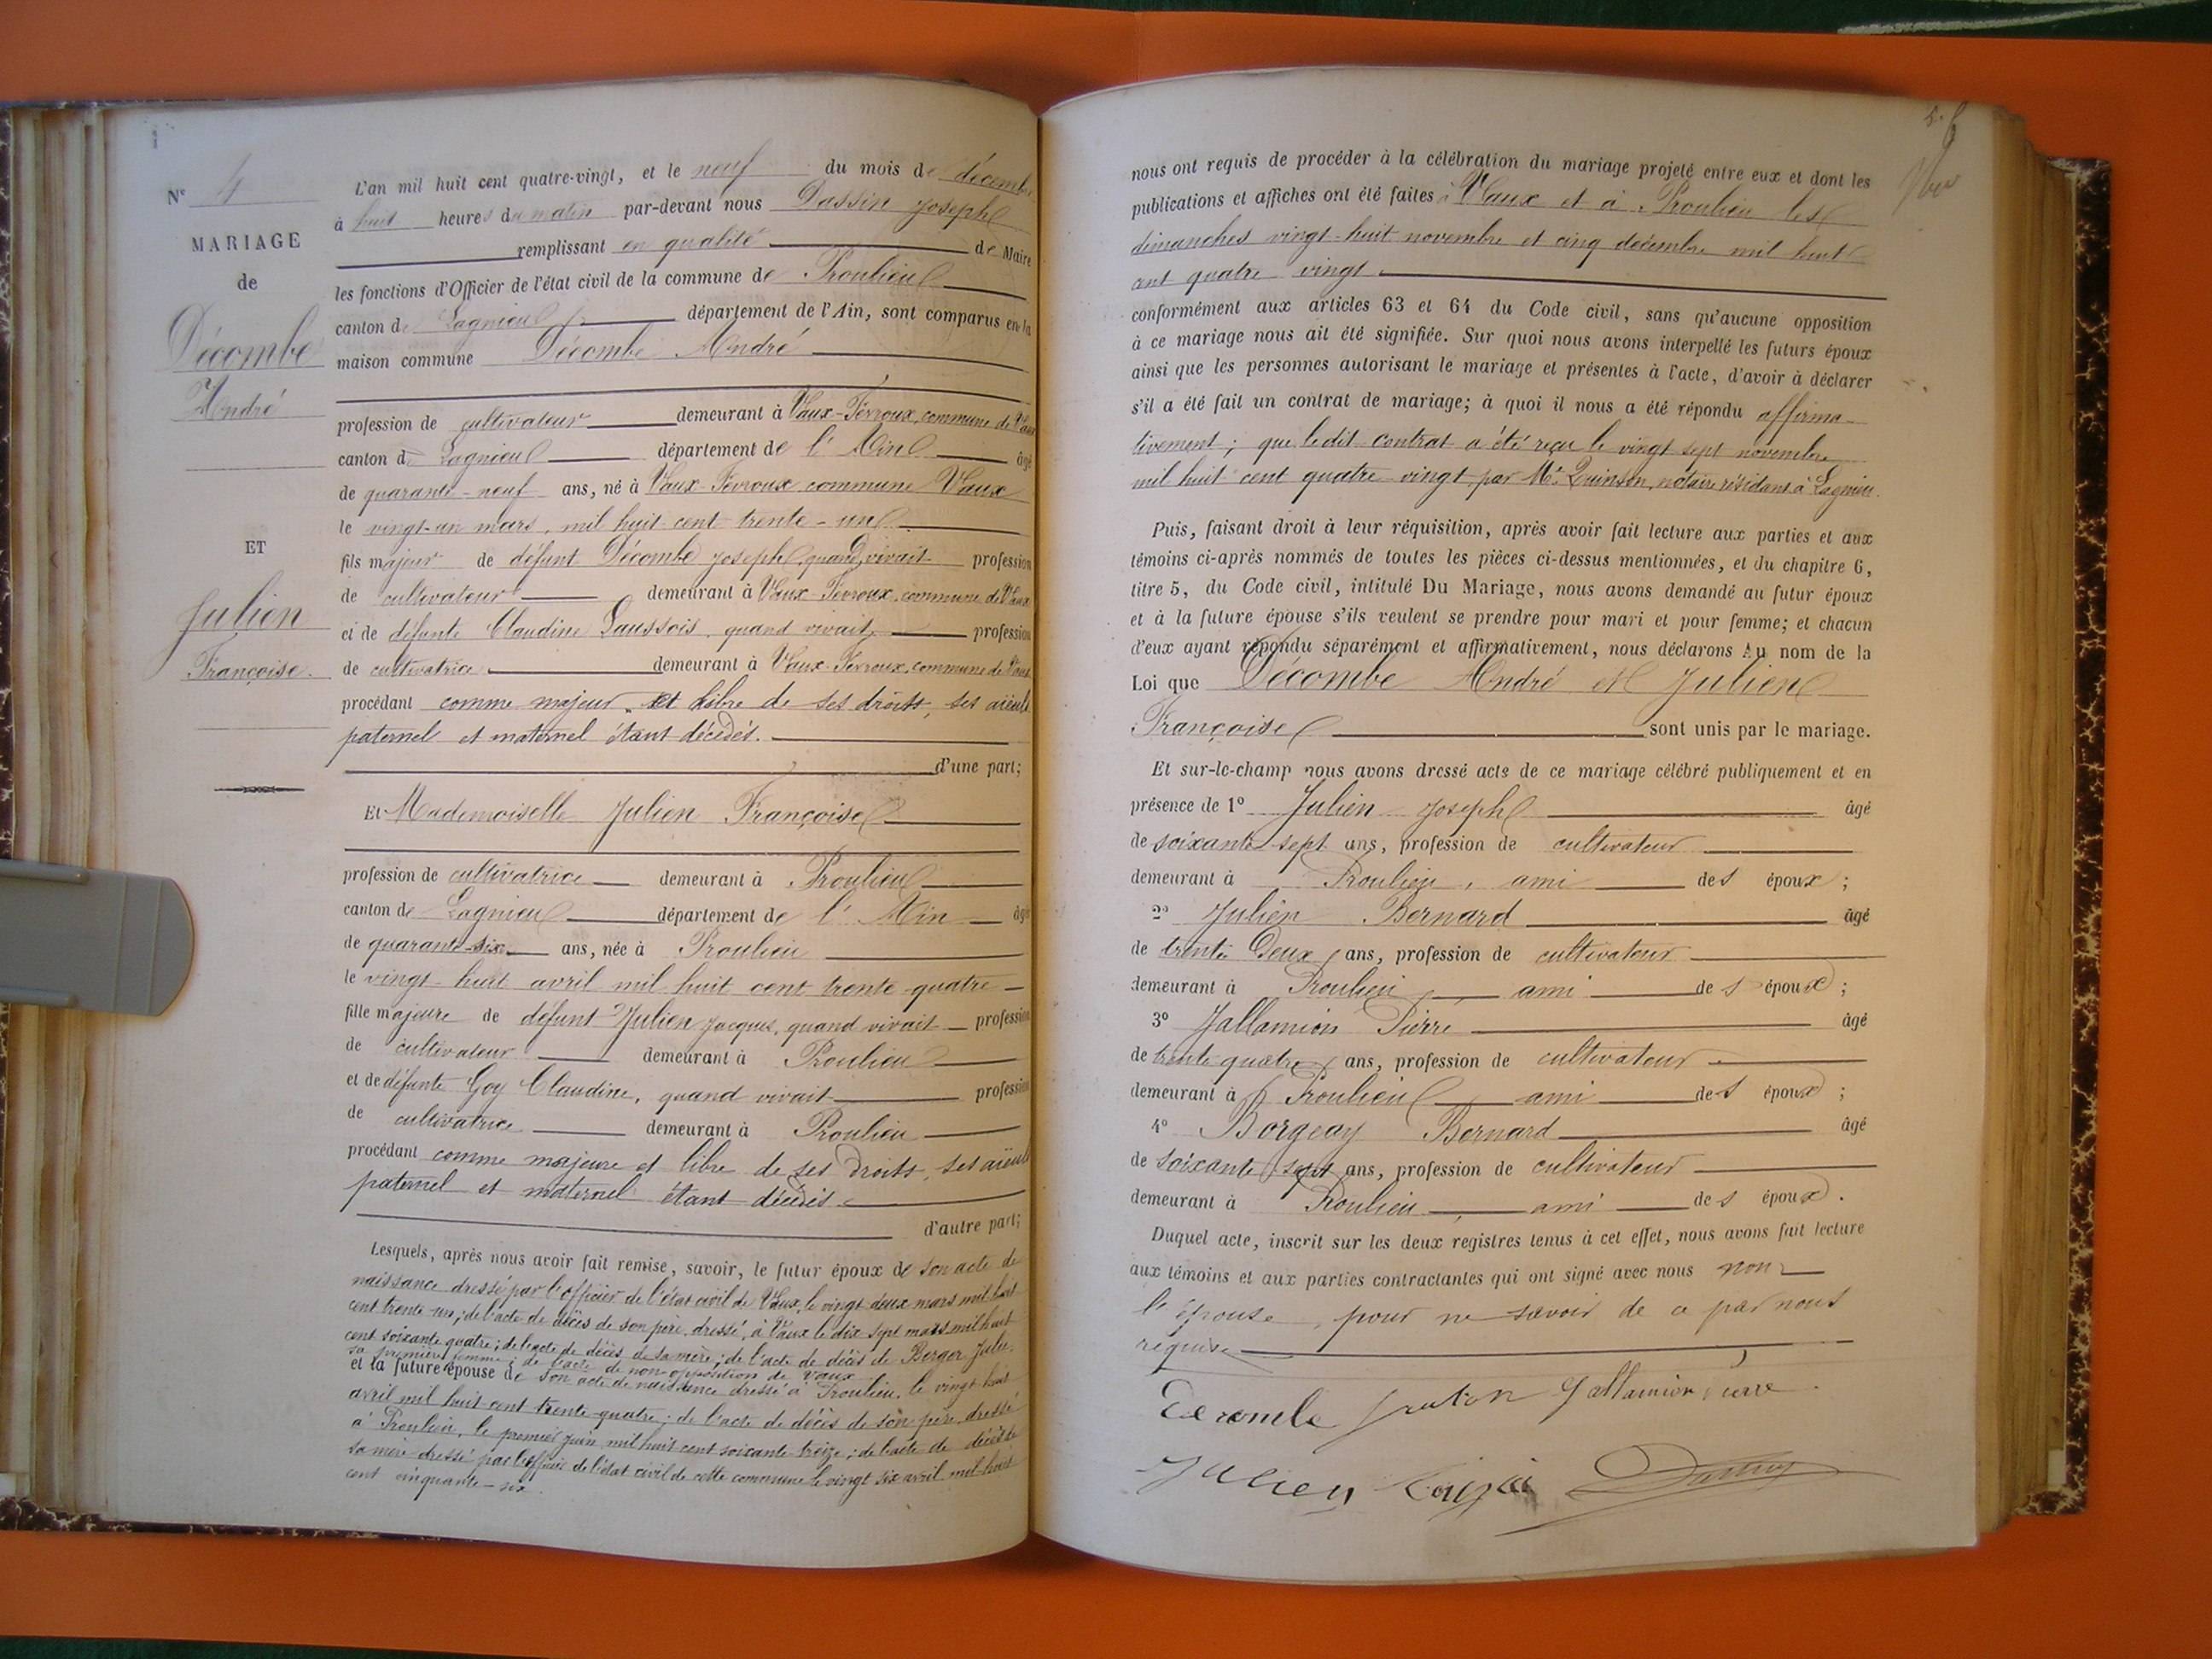 N° 4
MARIAGE
de
Décombe
André
ET
Julien
Françoise.
L'an mil huit cent quatre-vingt, et le neuf du mois de décembre
à huit heures du matin par-devant nous Dassin Joseph
remplissant en qualité de Maire
les fonctions d'Officier de l'état civil de la commune de Proulieu
canton de Lagnieu département de l'Ain, sont comparus en la
maison commune Décombe André
profession de cultivateur demeurant à Vaux-Févroux, commune de Vaux
canton de Lagnieu département de l'Ain âgé
de quarante-neuf ans, né à Vaux-Févroux commune Vaux
le vingt-un mars, mil huit cent trente-un
fils majeur de défunt Décombe Joseph, quand vivait profession
de cultivateur demeurant à Vaux-Févroux, commune de Vaux
et de défunte Claudine Laussois, quand vivait profession
de cultivatrice demeurant à Vaux-Févroux, commune de Vaux
procédant comme majeur et libre de ses droits, ses aïeuls
paternel et maternel étant décédés.
d'une part;
Et Mademoiselle Julien Françoise
profession de cultivatrice demeurant à Proulieu
canton de Lagnieu département de l'Ain âgée
de quarante-six ans, née à Proulieu
le vingt-huit avril mil huit cent trente-quatre
fille majeure de défunt Julien Jacques, quand vivait profession
de cultivateur demeurant à Proulieu
et de défunte Goy Claudine, quand vivait profession
de cultivatrice demeurant à Proulieu
procédant comme majeure et libre de ses droits, ses aïeuls
paternel et maternel étant décédés
d'autre part;
Lesquels, après nous avoir fait remise, savoir, le futur époux de son acte de
naissance dressé par l'officier de l'état civil de Vaux, le vingt deux mars mil huit
cent trente-un; de l'acte de décès de son père, dressé, à Vaux le dix sept mars mil huit
cent soixante quatre; de l'acte de décès de sa mère; de l'acte de décès de Berger Julie.
sa première femme; de l'acte de non-opposition de Vaux
et la future épouse de son acte de naissance dressé à Proulieu, le vingt huit
avril mil huit cent trente-quatre; de l'acte de décès de son père dressé
à Proulieu, le premier juin mil huit cent soixante-treize; de l'acte de décès de
sa mère dressé par l'officier de l'état civil de cette commune le vingt six avril mil huit
cent cinquante-six.
nous ont requis de procéder à la célébration du mariage projeté entre eux et dont les
publications et affiches ont été faites à Vaux et à Proulieu les
dimanches vingt-huit novembre et cinq décembre mil huit
cent quatre vingt
conformément aux articles 63 et 64 du Code civil, sans qu'aucune opposition
à ce mariage nous ait été signifiée. Sur quoi nous avons interpellé les futurs époux
ainsi que les personnes autorisant le mariage et présentes à l'acte, d'avoir à déclarer
s'il a été fait un contrat de mariage; à quoi il nous a été répondu affirma-
tivement; que le dit contrat a été reçu le vingt sept novembre
mil huit cent quatre-vingt par Me Quinson, notaire résidant à Lagnieu.
Puis, faisant droit à leur réquisition, après avoir fait lecture aux parties et aux
témoins ci-après nommés de toutes les pièces ci-dessus mentionnées, et du chapitre 6,
titre 5, du Code civil, intitulé Du Mariage, nous avons demandé au futur époux
et à la future épouse s'ils veulent se prendre pour mari et pour femme; et chacun
d'eux ayant répondu séparément et affirmativement, nous déclarons Au nom de la
Loi que Décombe André et Julien
Françoise sont unis par le mariage.
Et sur-le-champ nous avons dressé acte de ce mariage célébré publiquement et en
présence de 1° Julien Joseph âgé
de soixante-sept ans, profession de cultivateur
demeurant à Proulieu, ami des époux;
2° Julien Bernard âgé
de trente deux ans, profession de cultivateur
demeurant à Proulieu, ami des époux;
3° Jallamion Pierre âgé
de trente-quatre ans, profession de cultivateur
demeurant à Proulieu ami des époux;
4° Borgeay Bernard âgé
de soixante-sept ans, profession de cultivateur
demeurant à Proulieu, ami des époux.
Duquel acte, inscrit sur les deux registres tenus à cet effet, nous avons fait lecture
aux témoins et aux parties contractantes qui ont signé avec nous non
l'épouse, pour ne savoir de ce par nous
requise
Decombe Jallamion Pierre
Julien